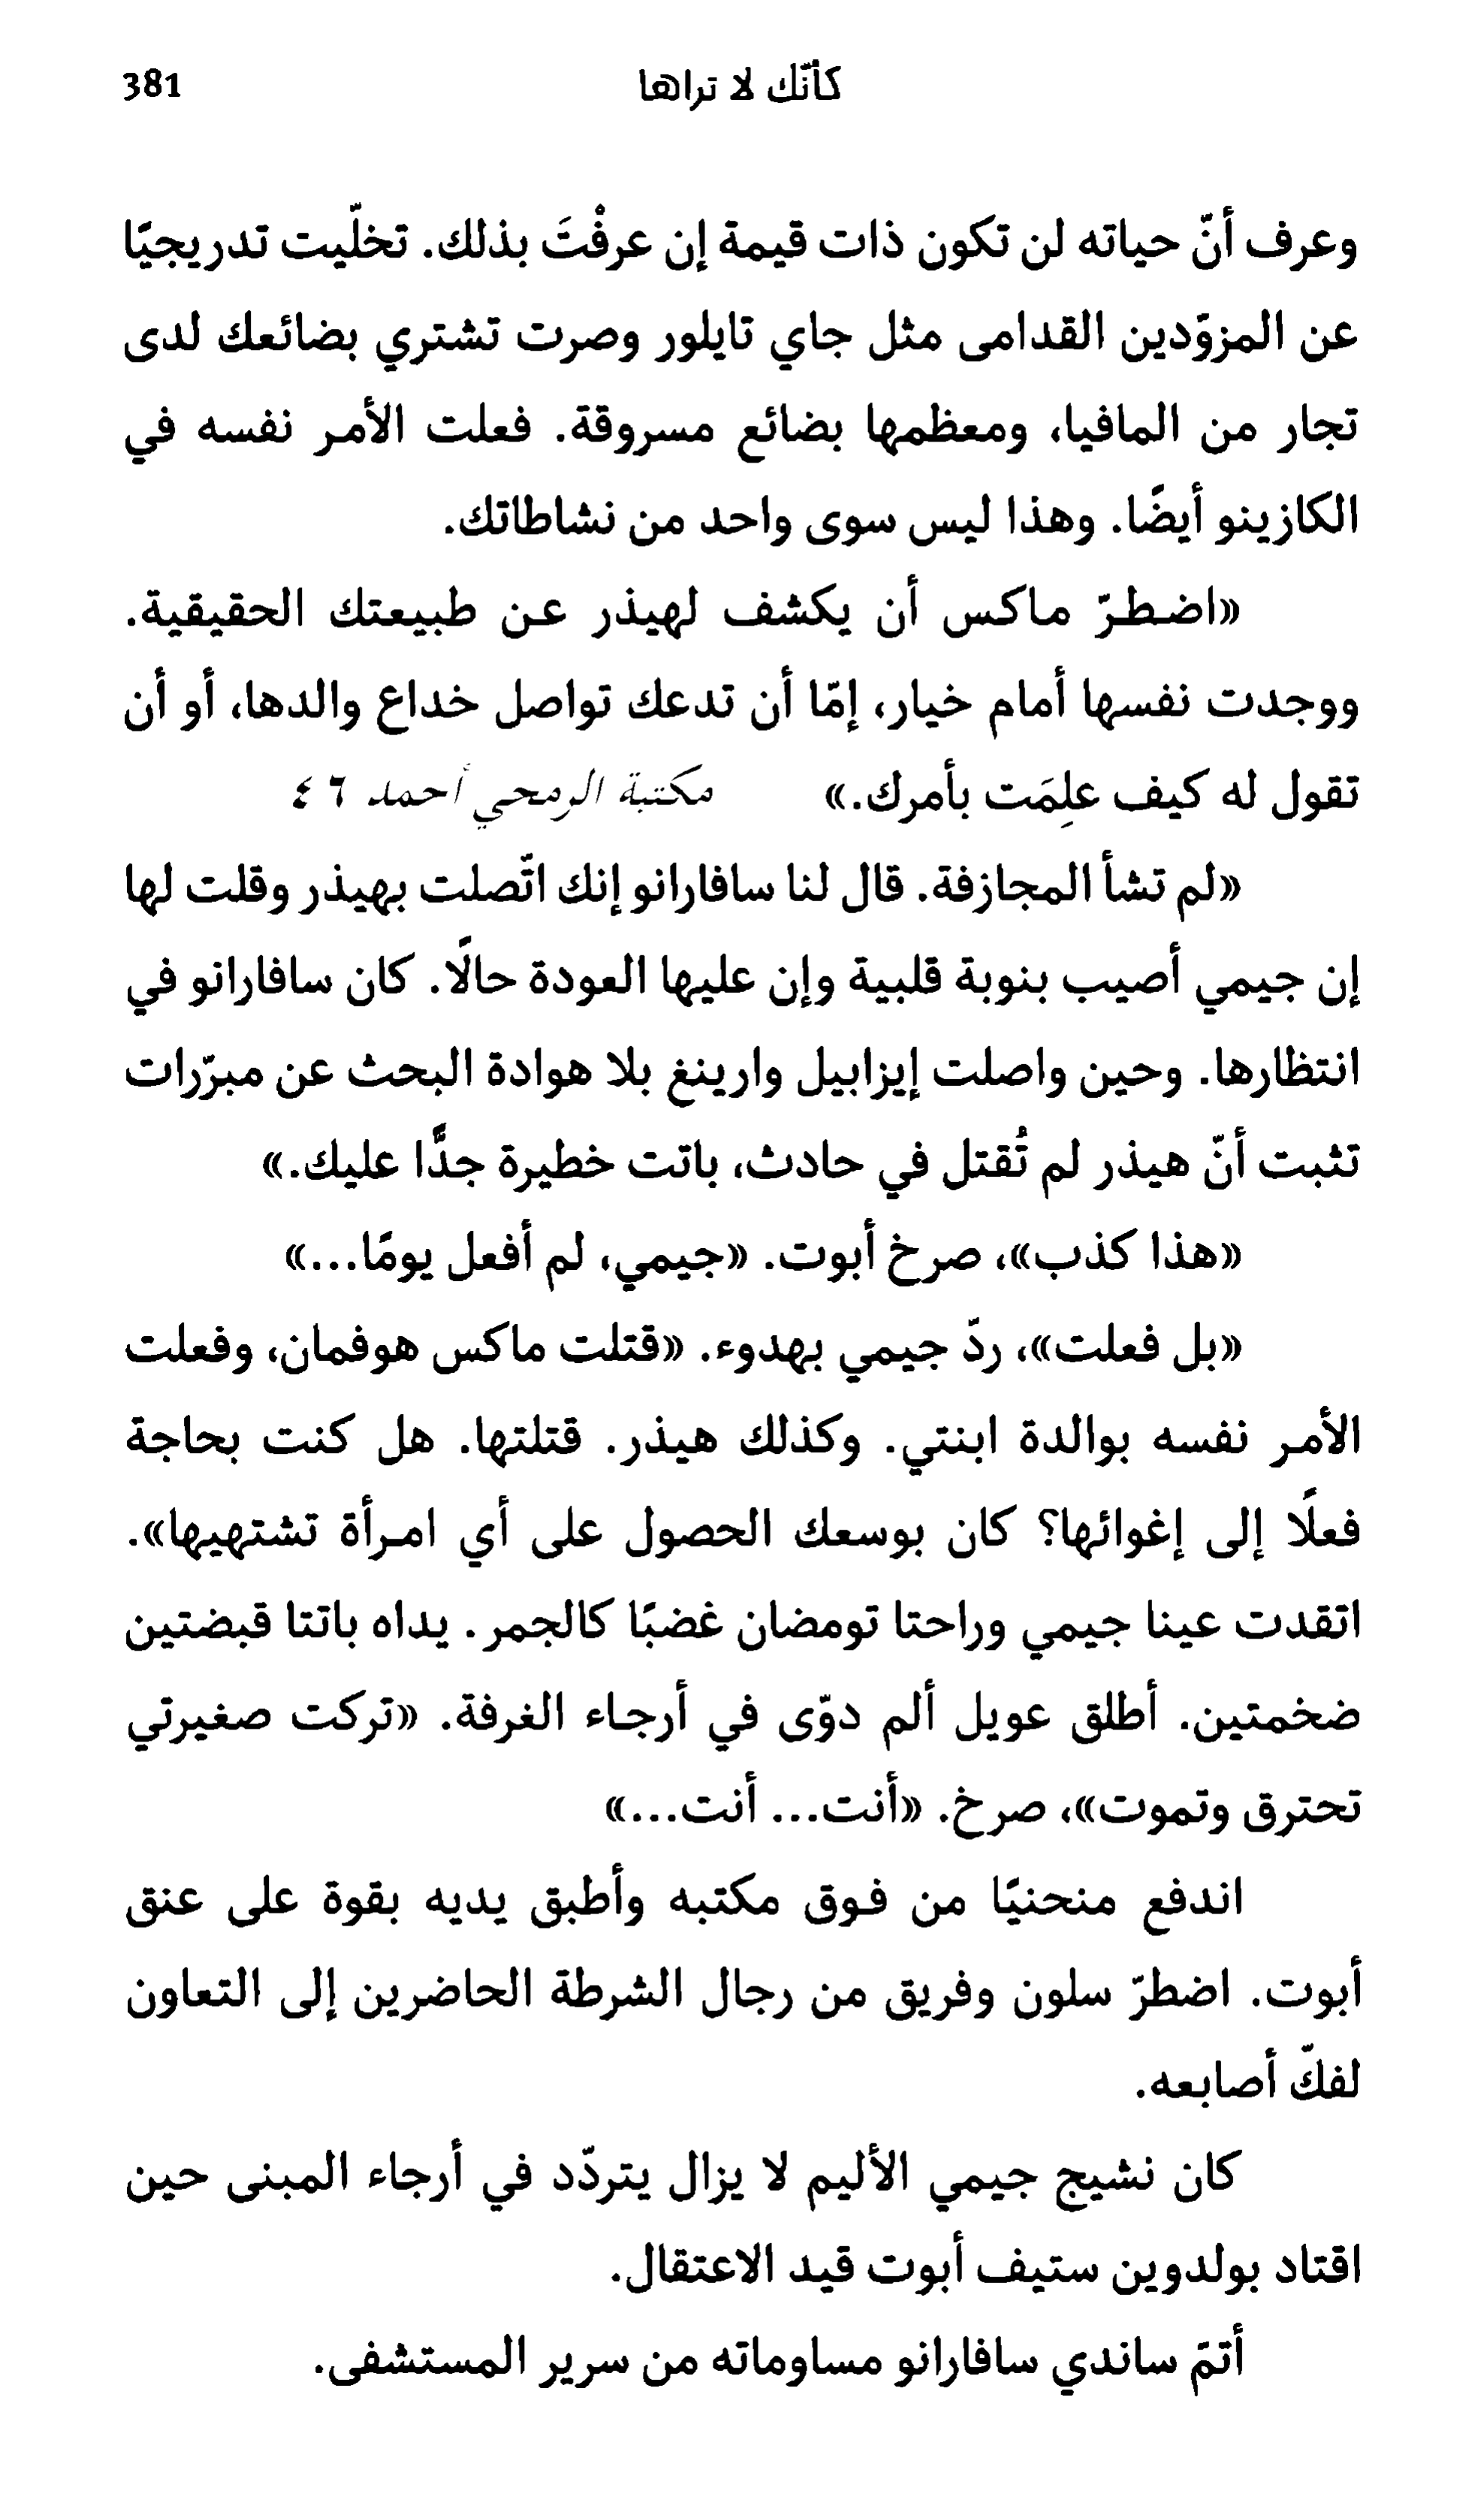 كأنّك لا تراها 381
وعرف أنّ حياته لن تكون ذات قيمة إن عرفْتَ بذلك. تخلّيت تدريجيًا
عن المزوّدين القدامى مثل جاي تايلور وصرت تشتري بضائعك لدى
تجار من المافيا، ومعظمها بضائع مسروقة. فعلت الأمر نفسه في
الكازينو أيضًا. وهذا ليس سوى واحد من نشاطاتك.
«اضطرّ ماكس أن يكشف لهيذر عن طبيعتك الحقيقية.
ووجدت نفسها أمام خيار، إمّا أن تدعك تواصل خداع والدها، أو أن
تقول له كيف علِمَت بأمرك.» مكتبة الرمحي أحمد ٤٦
«لم تشأ المجازفة. قال لنا سافارانو إنك اتّصلت بهيذر وقلت لها
إن جيمي أصيب بنوبة قلبية وإن عليها العودة حالًا. كان سافارانو في
انتظارها. وحين واصلت إيزابيل وارينغ بلا هوادة البحث عن مبرّرات
تثبت أنّ هيذر لم تُقتل في حادث، باتت خطيرة جدًّا عليك.»
«هذا كذب»، صرخ أبوت. «جيمي، لم أفعل يومًا...»
«بل فعلت»، ردّ جيمي بهدوء. «قتلت ماكس هوفمان، وفعلت
الأمر نفسه بوالدة ابنتي. وكذلك هيذر. قتلتها. هل كنت بحاجة
فعلًا إلى إغوائها؟ كان بوسعك الحصول على أي امرأة تشتهيها».
اتقدت عينا جيمي وراحتا تومضان غضبًا كالجمر. يداه باتتا قبضتين
ضخمتين. أطلق عويل ألم دوّى في أرجاء الغرفة. «تركت صغيرتي
تحترق وتموت»، صرخ. «أنت... أنت...»
اندفع منحنيًا من فوق مكتبه وأطبق يديه بقوة على عنق
أبوت. اضطرّ سلون وفريق من رجال الشرطة الحاضرين إلى التعاون
لفكّ أصابعه.
كان نشيج جيمي الأليم لا يزال يتردّد في أرجاء المبنى حين
اقتاد بولدوين ستيف أبوت قيد الاعتقال.
أتمَ ساندي سافارانو مساوماته من سرير المستشفى.